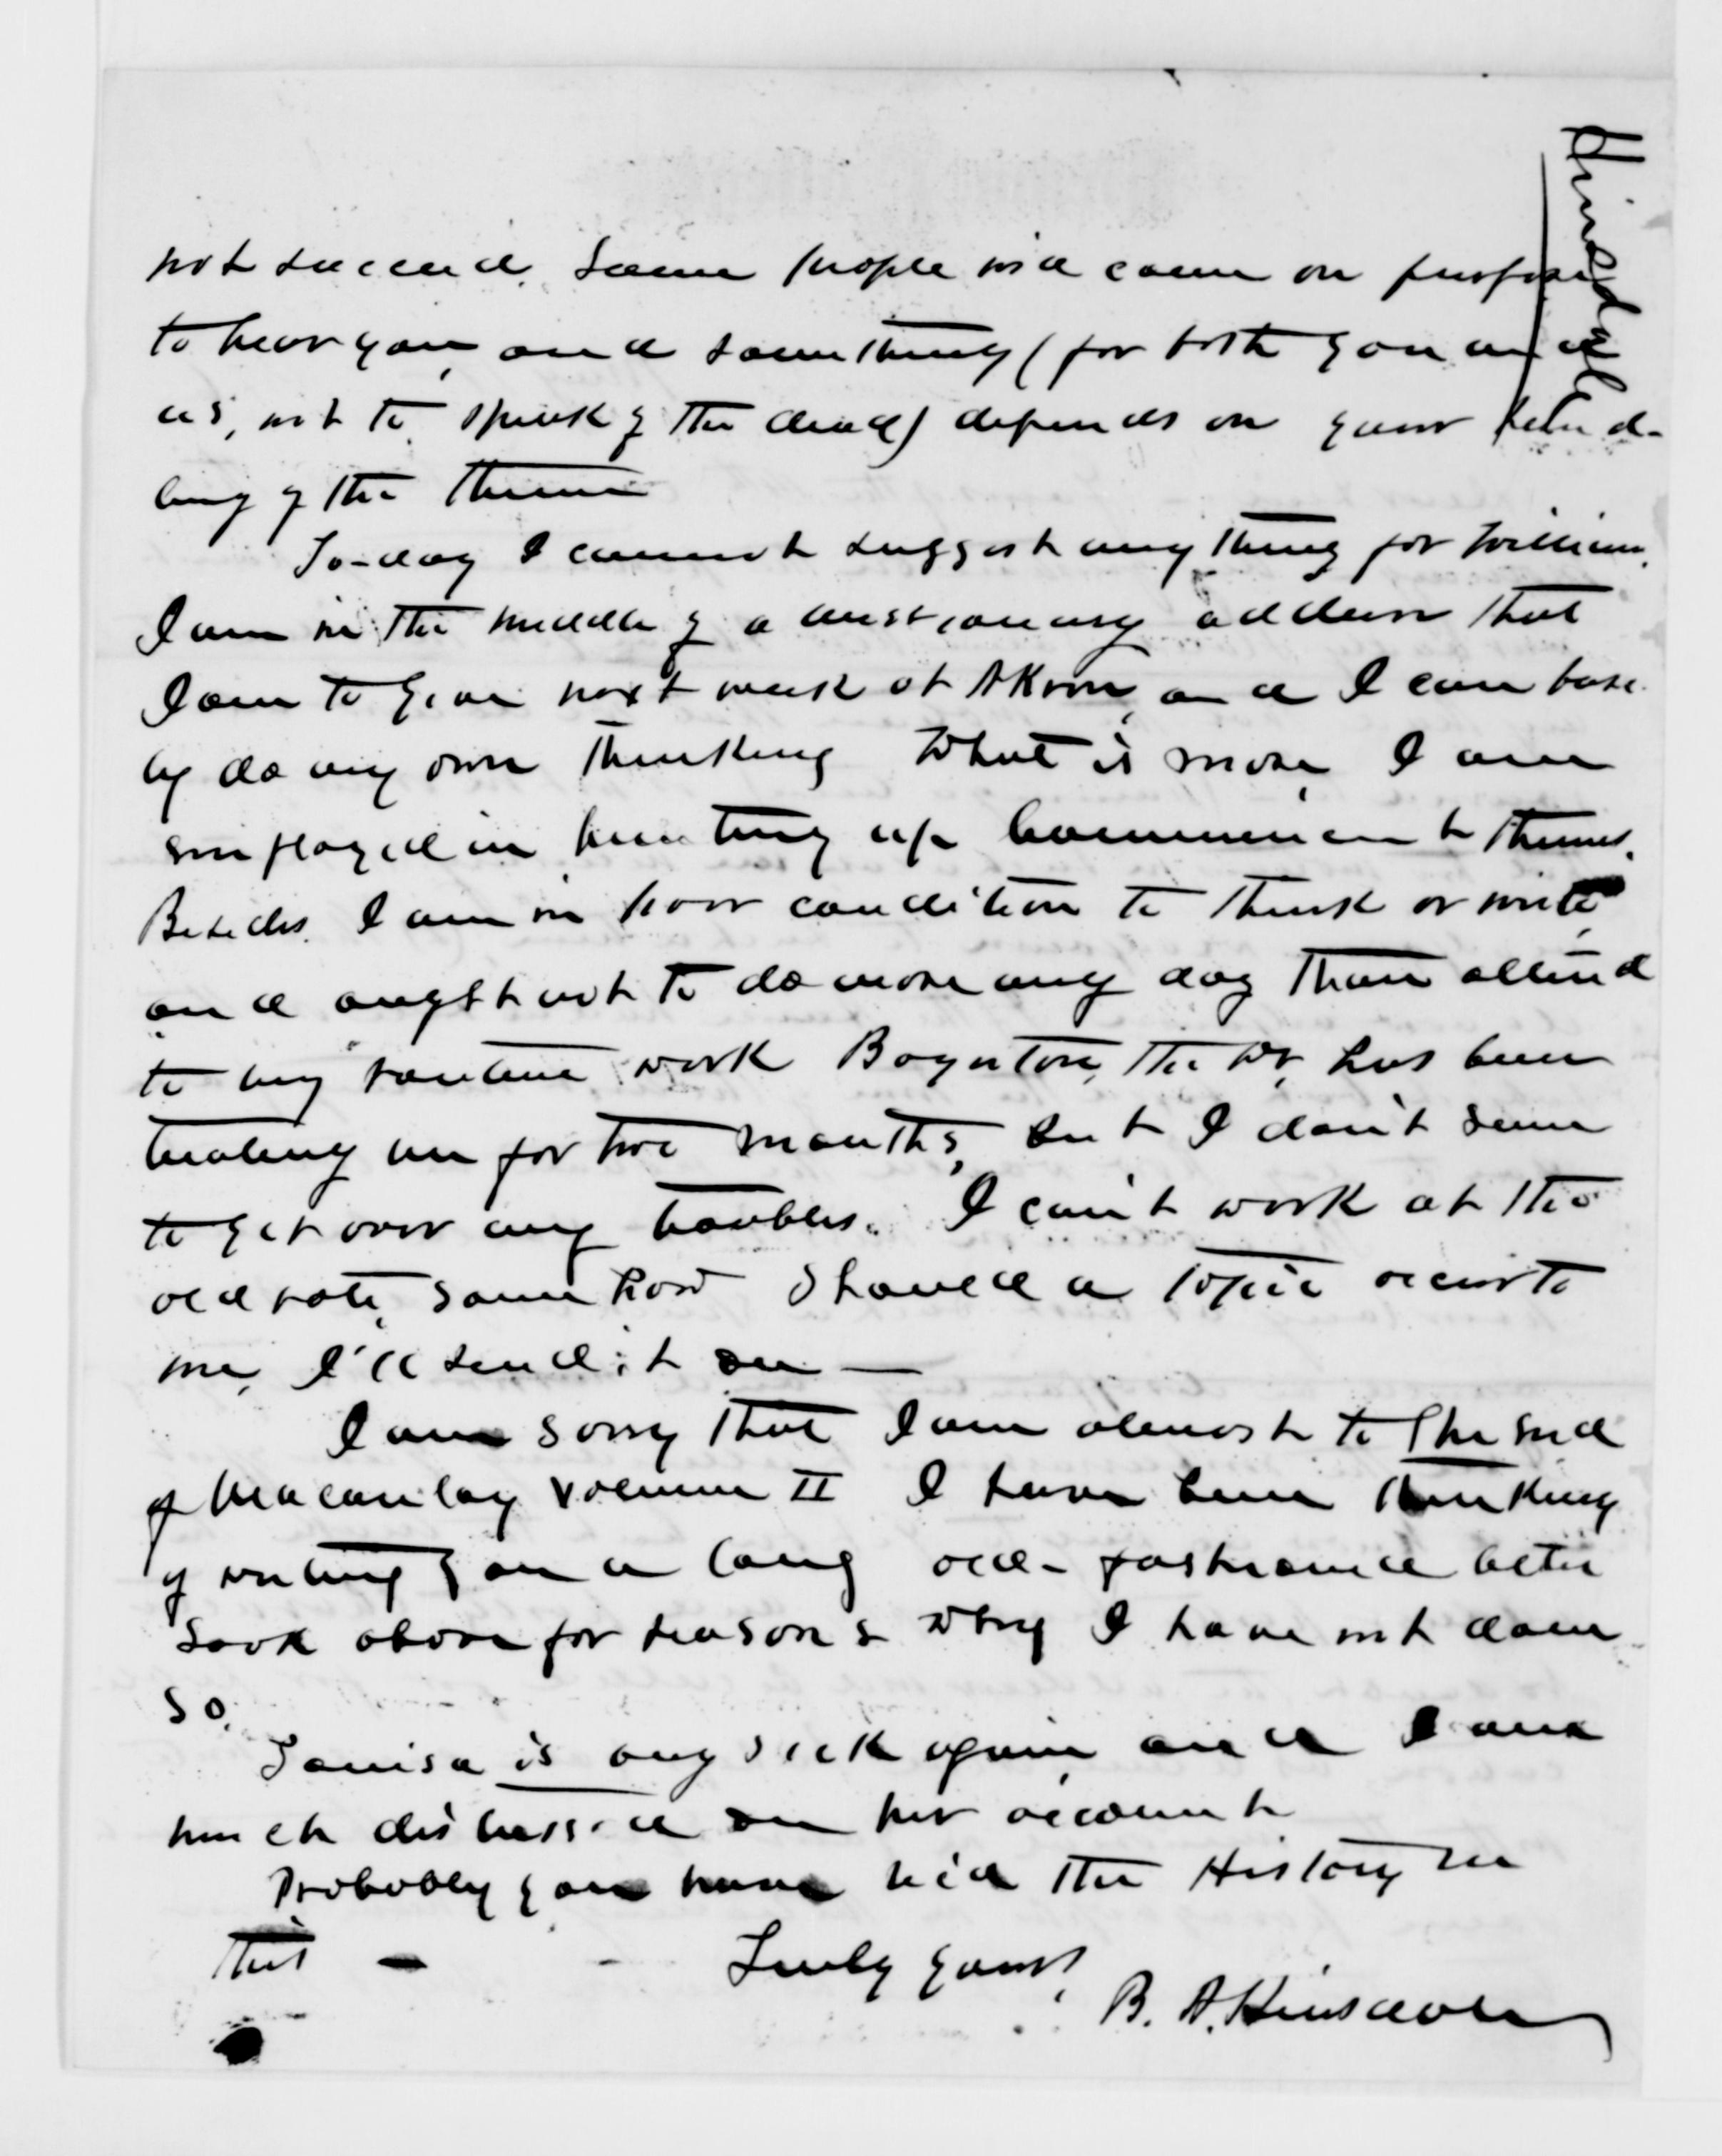 Hinsdale
not succeed. Some people will come on purpose
to hear you, and something (for both you and
us, not to speak of the dead) depends on your hand-
ling of the theme
To-day I cannot suggest anything for William.
I am in the middle of a missionary address that
I am to give next week at Akron, and I can hard-
ly do my own thinking What is more, I am
employed in hunting up Commencement themes.
Besides, I am in poor condition to think or write,
and ought not to do more any day than attend
to my routine work Boynton, the Dr, has been
treating me for two months, but I don't seem
to get over my troubles. I can't work at the
old rate, some how Should a topic occur to
me, I'll send it on —
I am sorry that I am almost to the end
of Macaulay Volume II I have been thinking
of writing you a long old-fashioned letter
Look above for reasons why I have not done
so.
Louisa is sick again, and I am
much distressed on her account
Probably you have had the History ere
this —
Truly yours,
B. A. Hinsdale